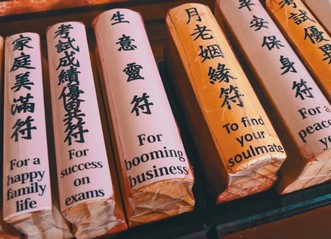 家庭美滿符
For a
happy
family
life
考試成績優異符
For
success
on
exams
生意靈符
For
booming
business
月老姻緣符
To find
your
soulmate
平安保身符
For a
peace
yo
考試優